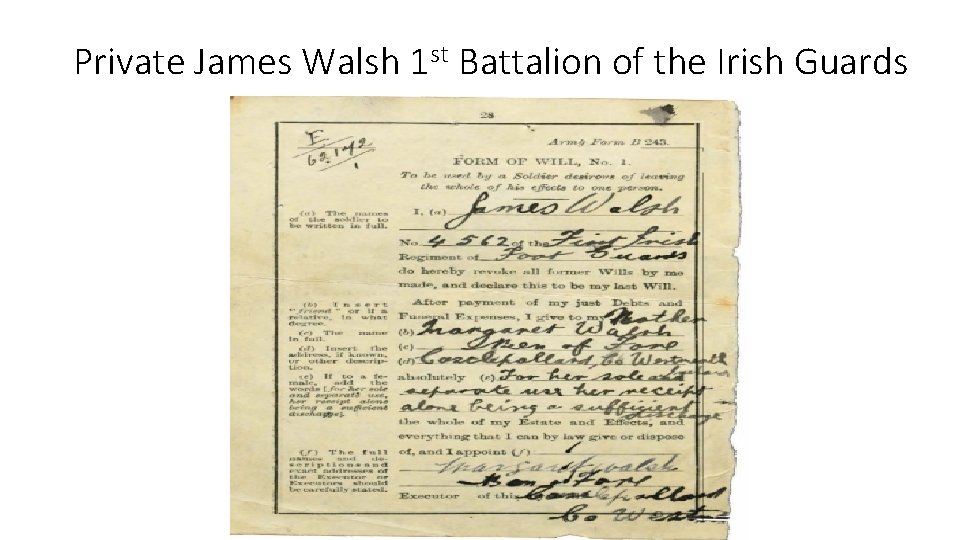 Private James Walsh 1st Battalion of the Irish Guards
28
E
62142
1
Army Form B 243.
FORM OF WILL, No. 1.
To be used by a Soldier desirous of leaving
the whole of his effects to one person.
(a) The names
of the soldier to
be written in full.
I, (a) James Walsh
No. 4562 of the First Irish
Regiment of Foot Guards
do hereby revoke all former Wills by me
made, and declare this to be my last Will.
(b) Insert
"friend" or if a
relative, in what
degree.
(c) The name
in full.
(d) Insert the
address, if known,
or other descrip-
tion.
(e) If to a fe-
male, add the
words [for her sole
and separate use,
her receipt alone
being a sufficient
discharge].
After payment of my just Debts and
Funeral Expenses, I give to my Mother
(b) Margaret Walsh
(c) Ben of Fore
(d) Castlepollard, Co Westmeath
Ireland
absolutely (e) For her sole and
separate use her receipt
alone being a sufficient
discharge
the whole of my Estate and Effects, and
everything that I can by law give or dispose
(f) The full
names and de-
scriptions and
exact addresses of
the Executor or
Executors should
be carefully stated.
of, and I appoint (f)
Margaret Walsh
Ben of Fore
Executor of this Castlepollard
Co West